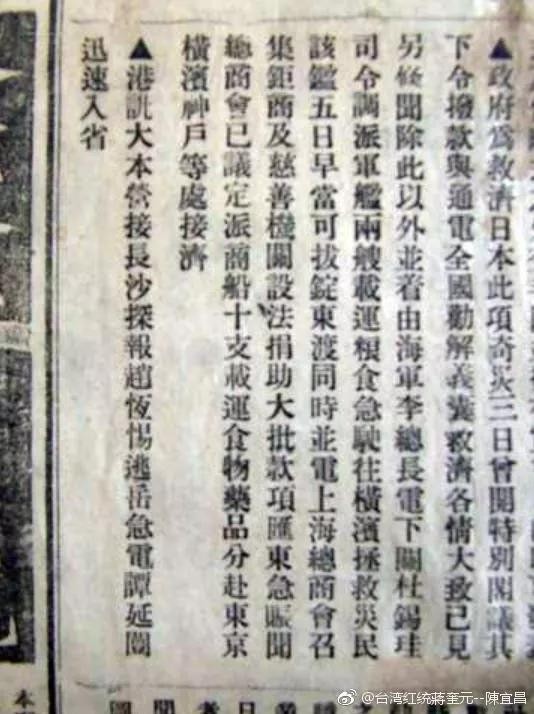 ▲政府爲救濟日本此項奇災三日曾開特別閣議其
下令撥款與通電全國勸解義囊救濟各情大致已見
另條聞除此以外並着由海軍李總長電下關杜錫珪
司令調派軍艦兩艘載運粮食急駛往橫濱拯救災民
該鑑五日早當可拔錠東渡同時並電上海總商會召
集鉅商及慈善機關設法捐助大批款項匯東急賑聞
總商會已議定派商船十支載運食物藥品分赴東京
橫濱神戶等處接濟
▲港訊大本營接長沙探報趙恆惕逃岳急電譚延闓
迅速入省
本
@台湾红统蔣奎元--陳宜昌